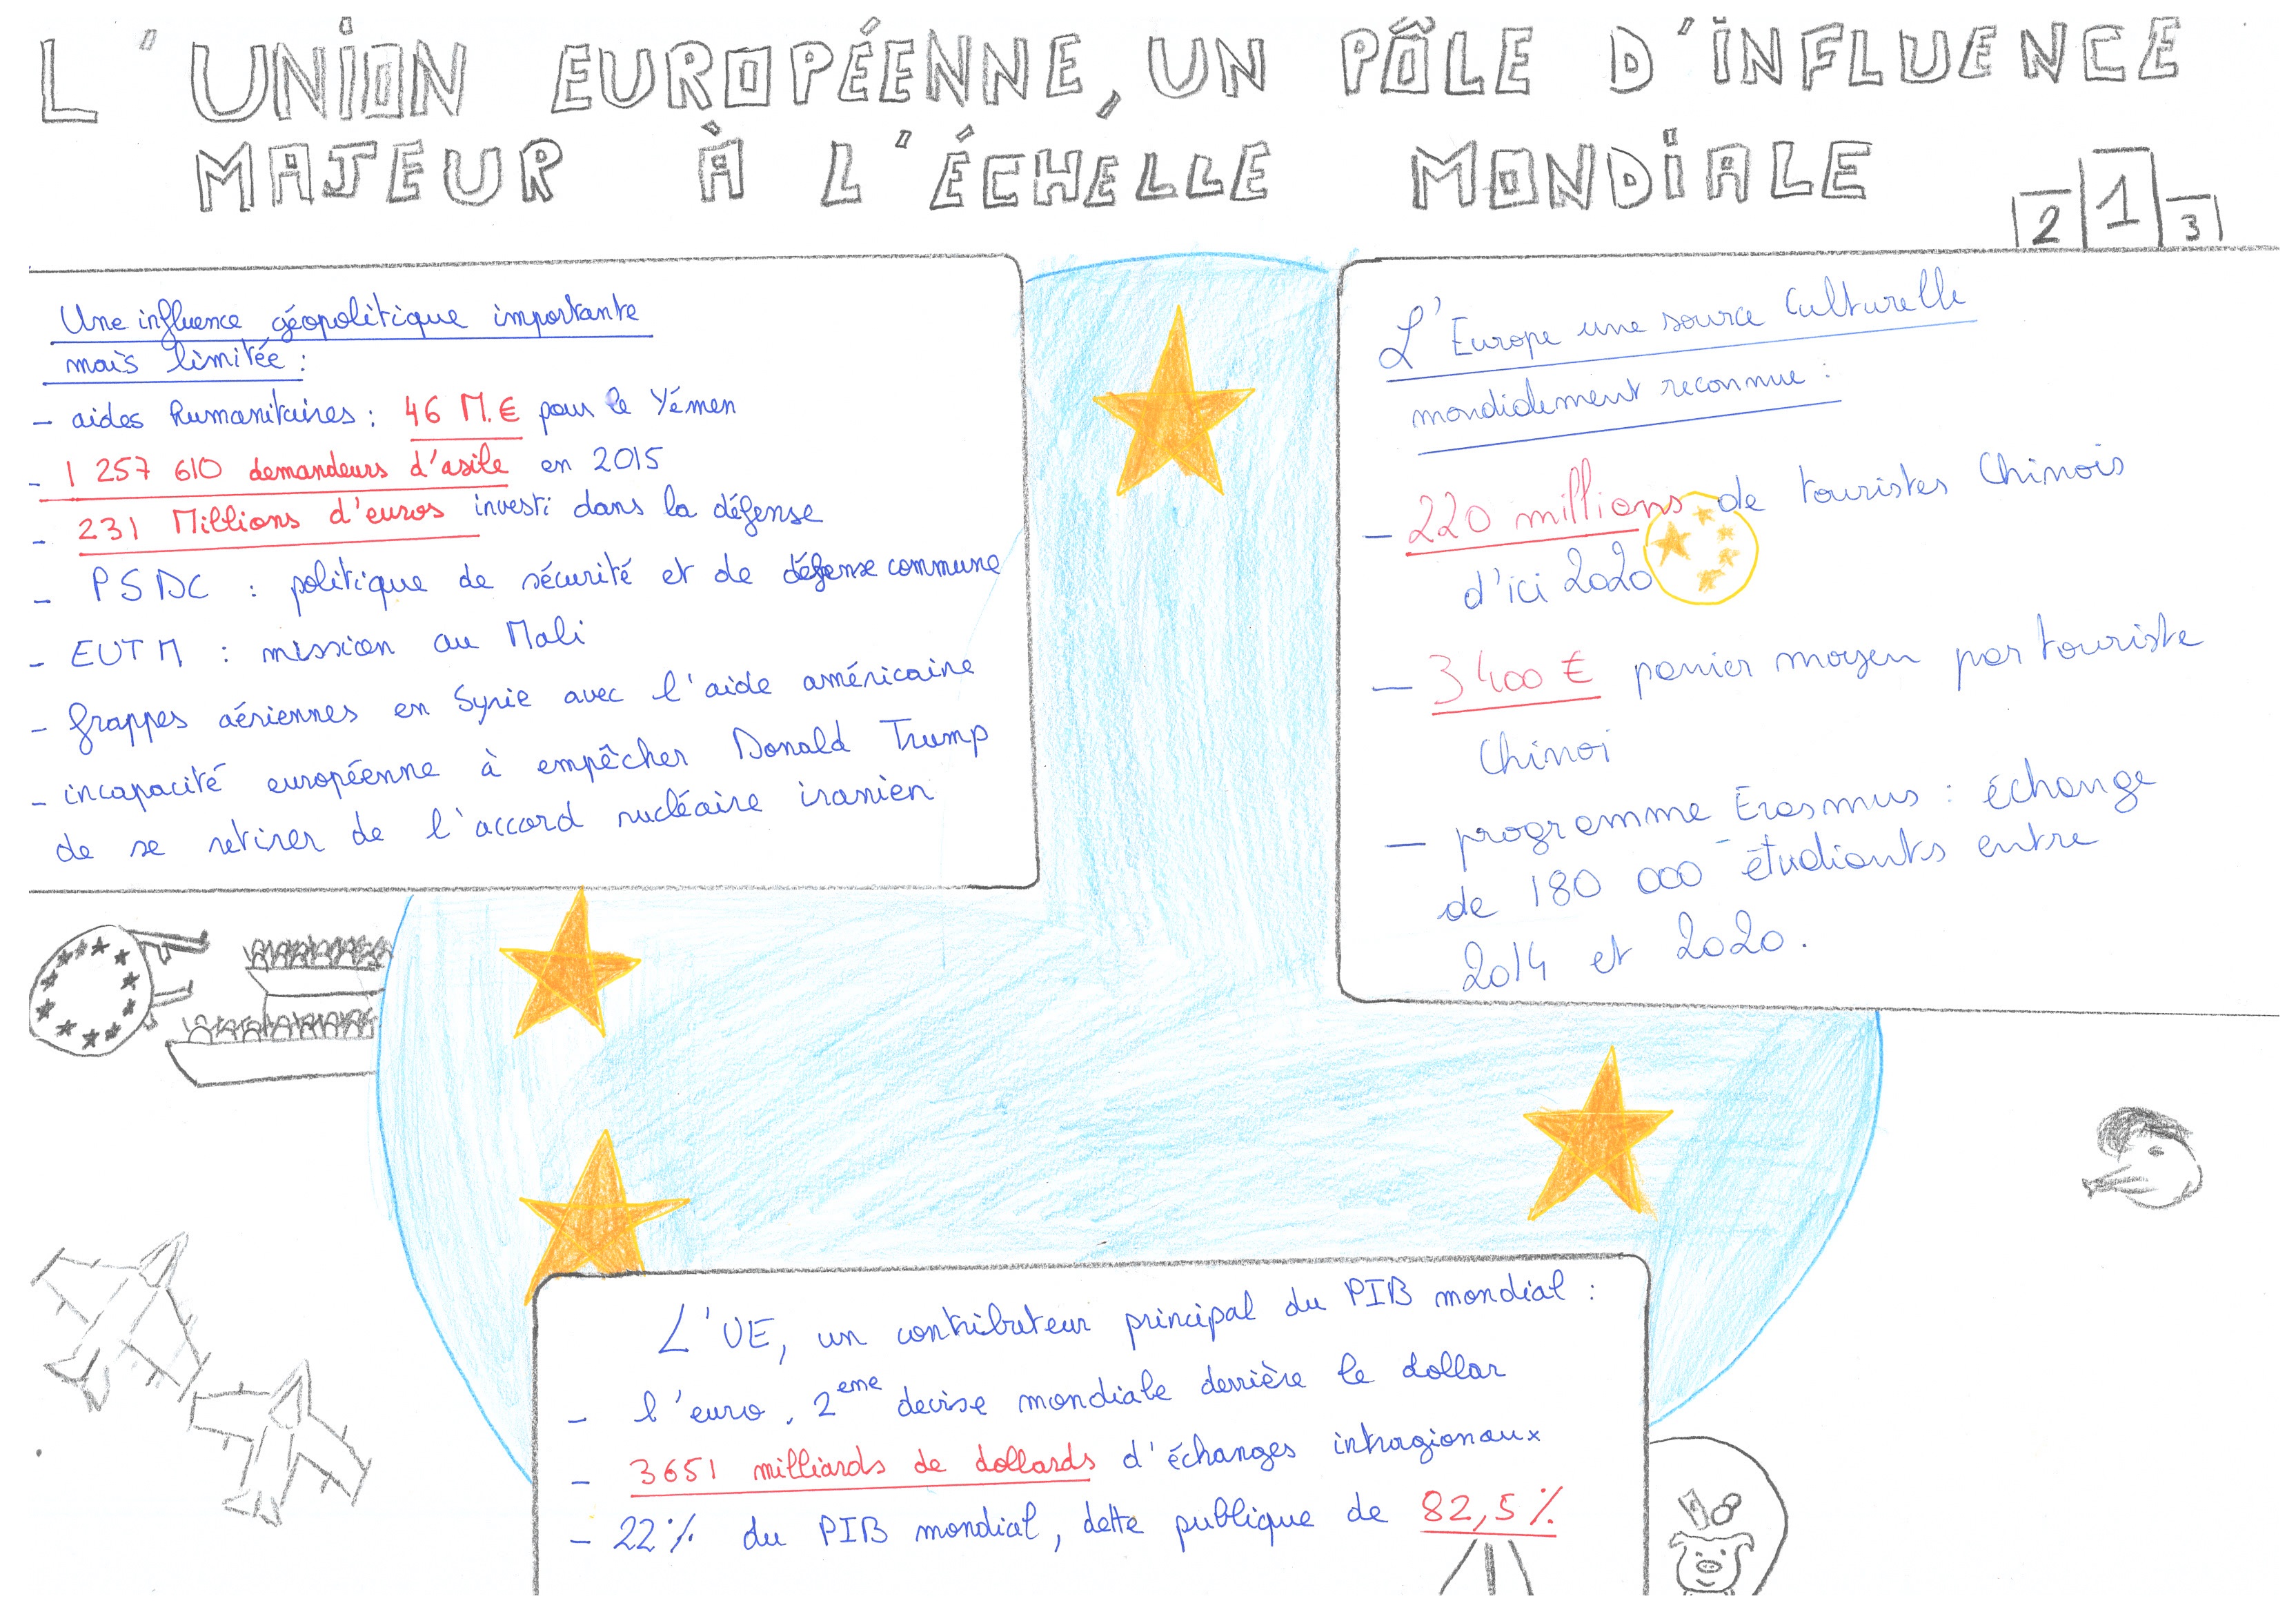 L'UNION EUROPÉENNE, UN PÔLE D'INFLUENCE
MAJEUR À L'ÉCHELLE MONDIALE
2 1 3
Une influence géopolitique importante
mais limitée :
- aides humanitaires : 46 M.€ pour le Yémen
- 1 257 610 demandeurs d'asile en 2015
- 231 Millions d'euros investi dans la défense
- PSDC : politique de sécurité et de défense commune
- EUTM : mission au Mali
- frappes aériennes en Syrie avec l'aide américaine
- incapacité européenne à empêcher Donald Trump
de se retirer de l'accord nucléaire iranien
L'Europe une source Culturelle
mondialement reconnue :
- 220 millions de touristes Chinois
d'ici 2020
- 3 400 € panier moyen par touriste
Chinoi
- programme Erasmus : échange
de 180 000 étudiants entre
2014 et 2020.
L'UE, un contributeur principal du PIB mondial :
- l'euro, 2eme devise mondiale derrière le dollar
- 3651 milliards de dollards d'échanges intraregionaux
- 22% du PIB mondial, dette publique de 82,5%